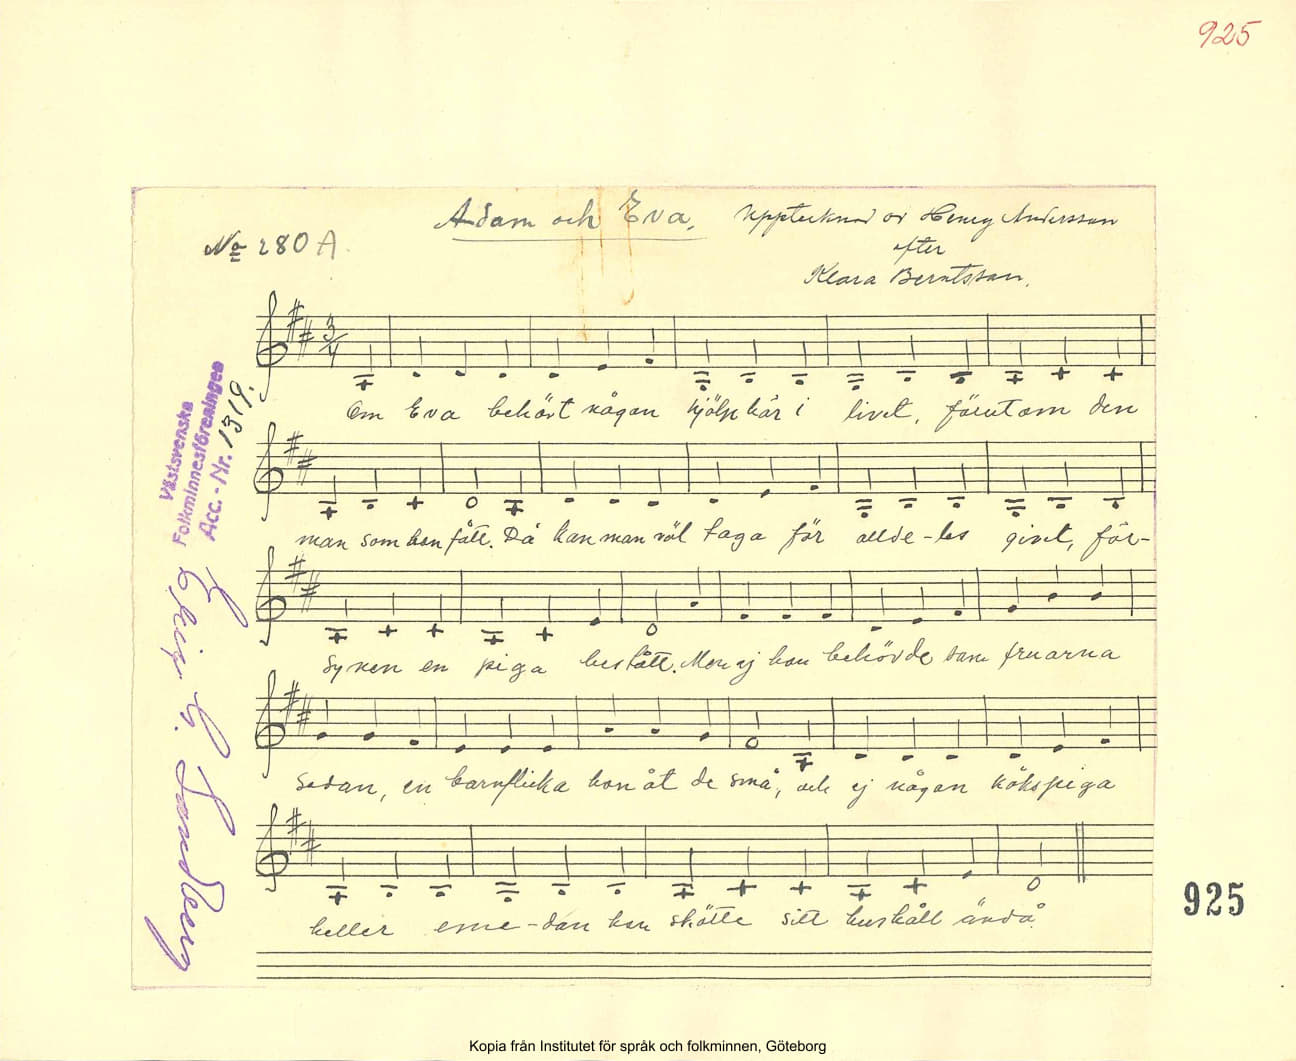 925
Adam och Eva.
Upptecknad av Henry Andersson
efter
Klara Berntsson.
No 280 A.
3/4
Om Eva behövt någon hjälp här i livet, förutom den
man som hon fått. Då kan man väl taga för allde-les givet, för-
synen en piga bestått. Men ej hon behövde som fruarna
sedan, en barnflicka hon åt de små, och ej någon kökspiga
heller eme-dan hon skötte sitt hushåll ändå.
Västsvenska
Folkminnesföreningen
Acc.-Nr. 1319.
C. Sandberg
925
Kopia från Institutet för språk och folkminnen, Göteborg